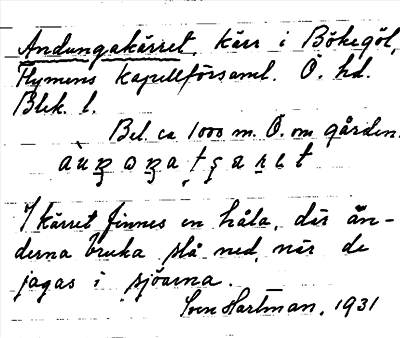 Andungakärret, kärr i Bökegöl,
Flymens kapellförsaml. Ö. hd.
Blek. l.
Bel. ca 1000 m. Ö. om gården.
I kärret finnes en håla, där än-
derna bruka slå ned, när de
jagas i sjöarna.
Sven Hartman, 1931